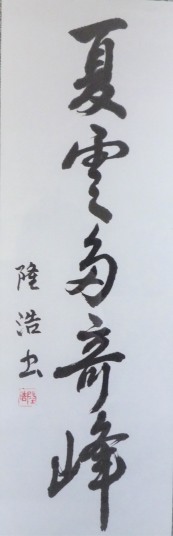 夏雲多奇峰
隆浩書